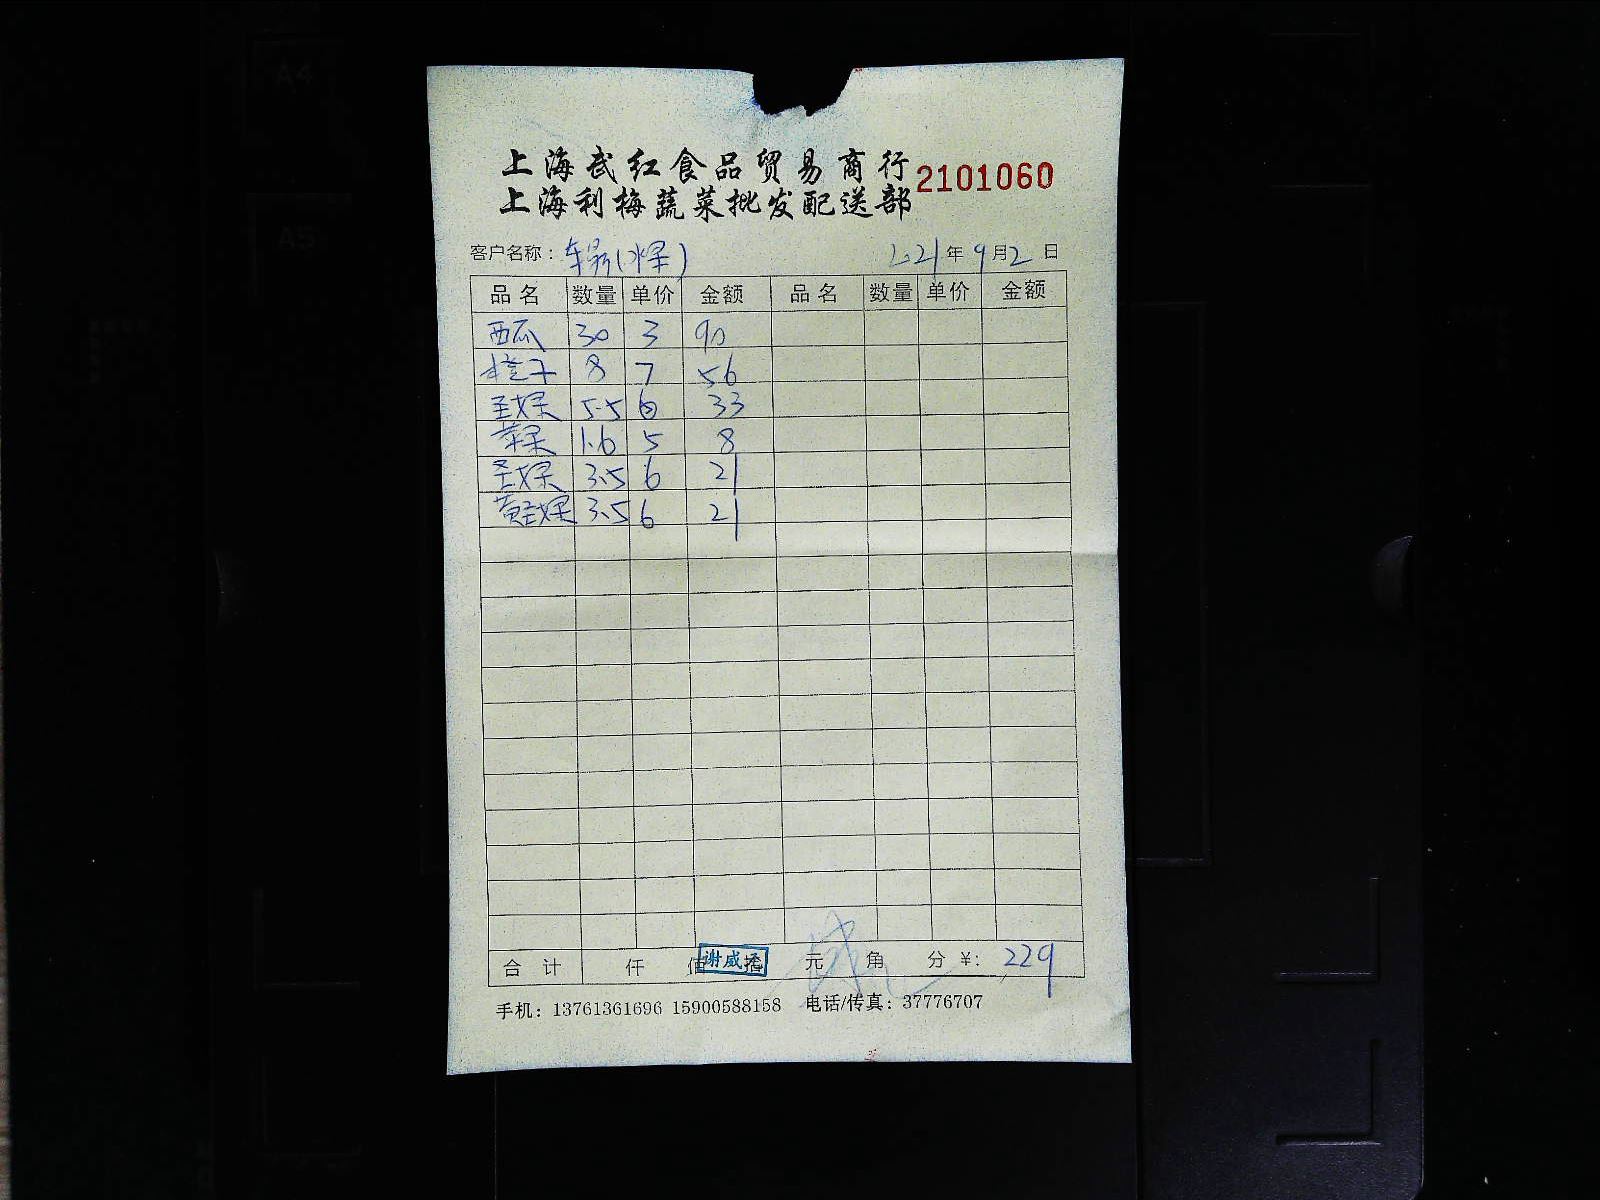 上海武红食品贸易商行
2101060
上海利梅蔬菜批发配送部
客户名称： (水果) 2021年9月2日
品名 数量 单价 金额 品名 数量 单价 金额
西瓜 30 3 90
橙子 8 7 56
圣女果 5.5 6 33
苹果 1.6 5 8
圣女果 3.5 6 21
黄圣女果 3.5 6 21
合计 仟 佰 拾 元 角 分 ¥: 229
手机：13761361696 15900588158 电话/传真：37776707
A4
A5